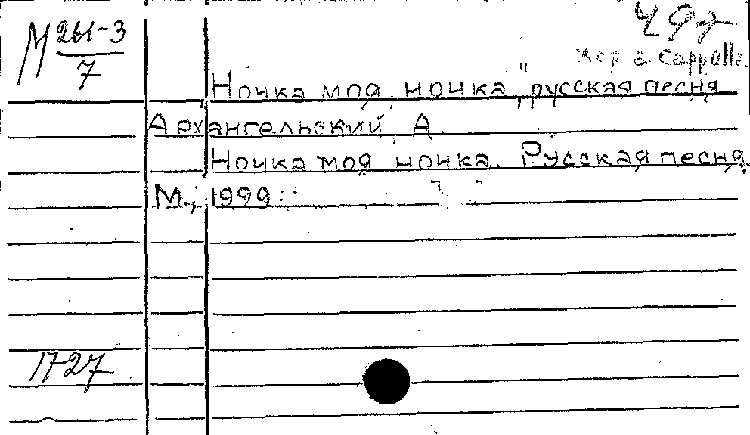 М 261-3
7
497
Хор a Cappella
Ночка моя, ночка", русская песня
Архангельский, А.
Ночка моя ночка. Русская песня.
М., 1999
1727